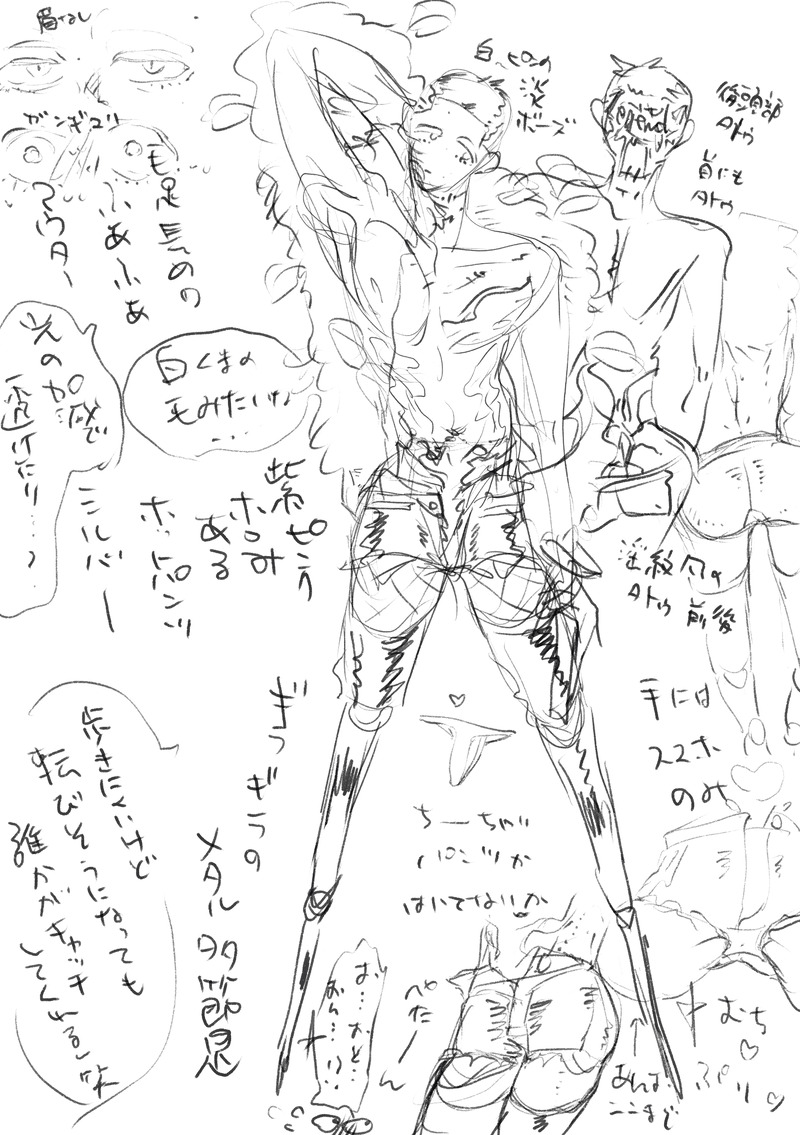 眉なし
ガンギマリ
毛足長めの
ふあふあ
アウター
白っぽめの
淡
ボーズ
legend
後頭部
タトゥ
首にも
タトゥ
白くまの
毛みたいな
…
光の加減で
透けたり…?
紫ピンク
ホロみ
ある
ホットパンツ
シルバー
淫紋風の
タトゥ 前後
手には
スマホ
のみ
ぎっぎらの
メタル多節足
歩きにくいけど
転びそうになっても
誰かがキャッチ
してくれる笑
ちーちゃい
パンツか
はいてないか
ぺた
ん
むち
ぷり
あんよ
ここまで